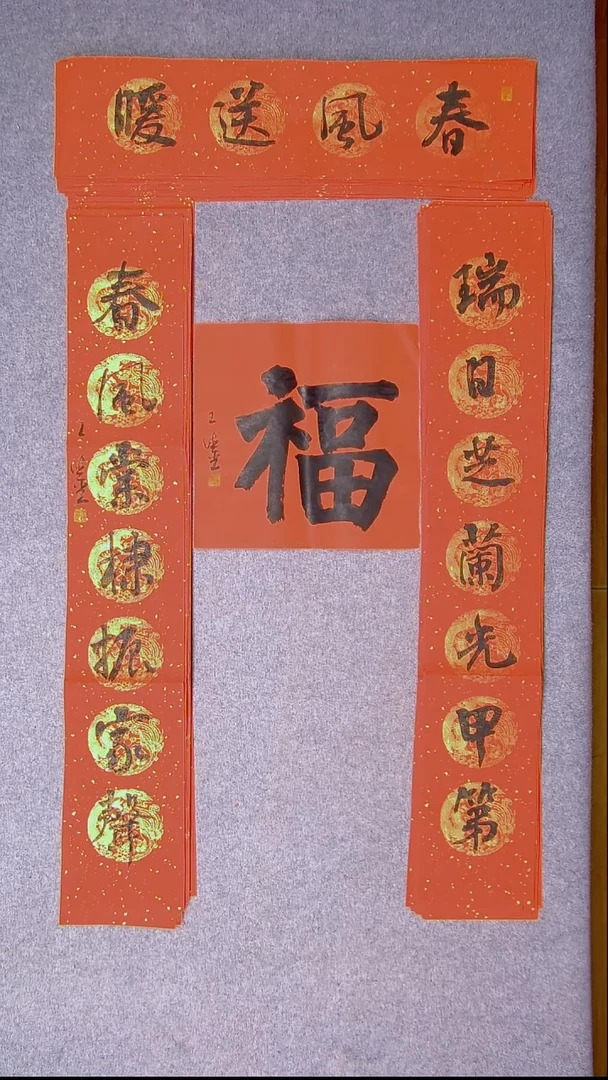 春風送暖
瑞日芝蘭光甲第
春風棠棣振家聲
福